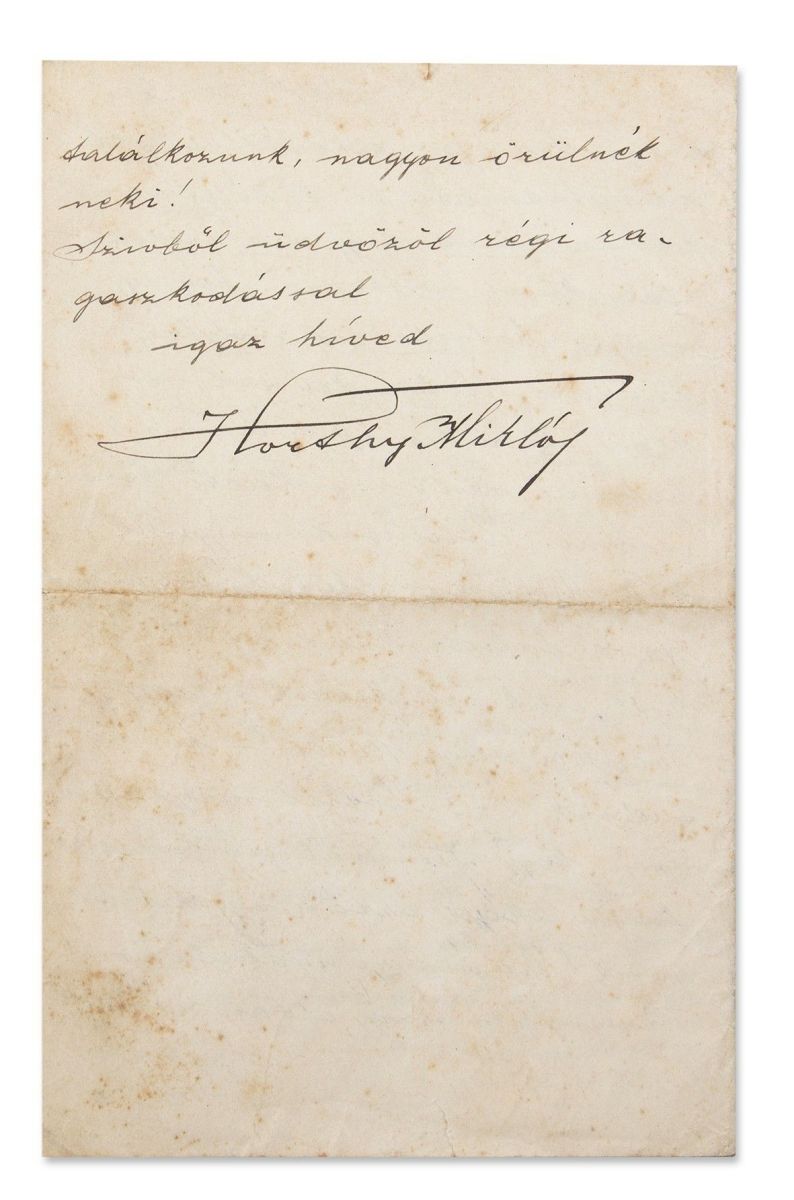 találkozunk, nagyon örülnék
neki!
Szivből üdvözöl régi ra-
gaszkodással
igaz híved
Horthy Miklós